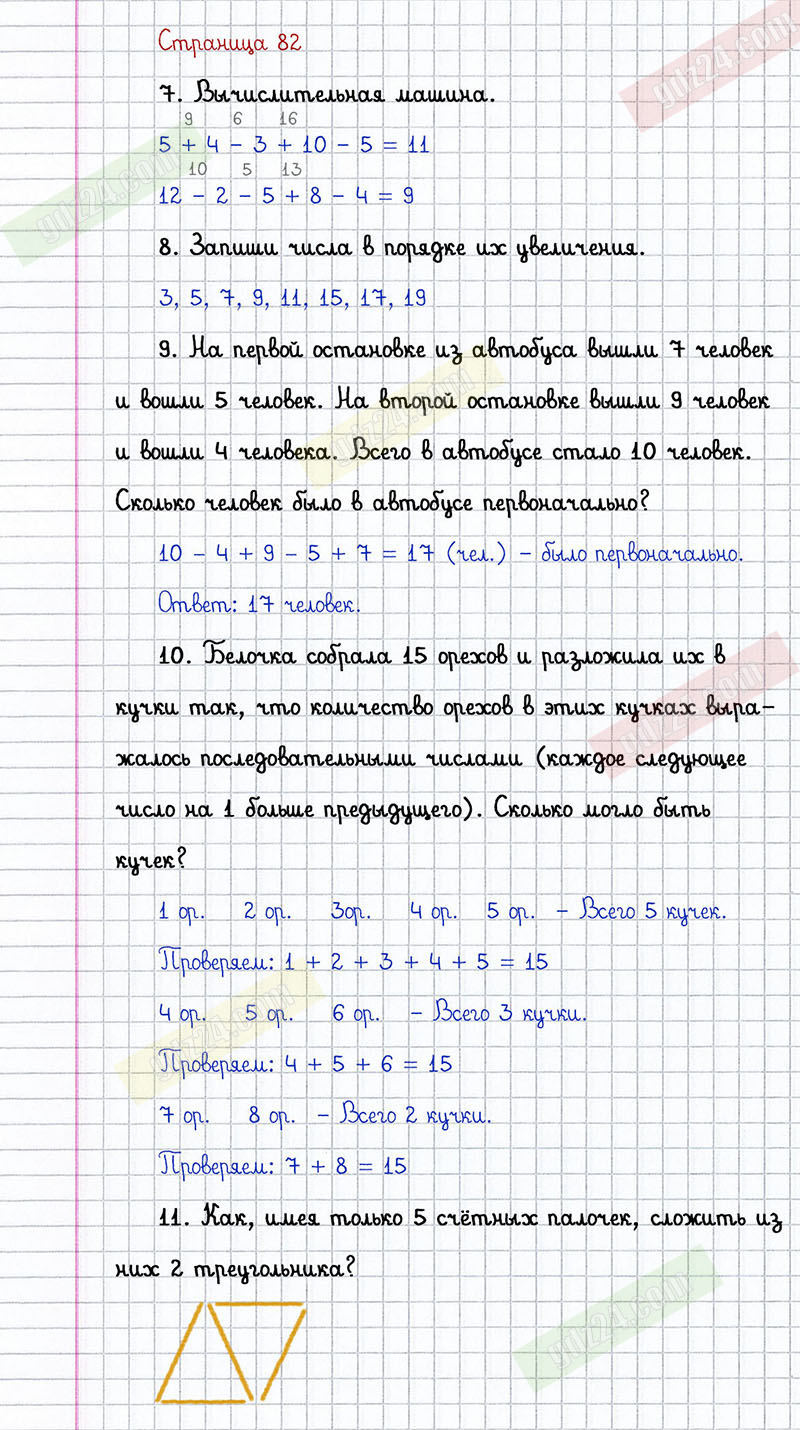 Страница 82
7. Вычислительная машина.
9 6 16
5 + 4 - 3 + 10 - 5 = 11
10 5 13
12 - 2 - 5 + 8 - 4 = 9
8. Запиши числа в порядке их увеличения.
3, 5, 7, 9, 11, 15, 17, 19
9. На первой остановке из автобуса вышли 7 человек
и вошли 5 человек. На второй остановке вышли 9 человек
и вошли 4 человека. Всего в автобусе стало 10 человек.
Сколько человек было в автобусе первоначально?
10 - 4 + 9 - 5 + 7 = 17 (чел.) - было первоначально.
Ответ: 17 человек.
10. Белочка собрала 15 орехов и разложила их в
кучки так, что количество орехов в этих кучках выра-
жалось последовательными числами (каждое следующее
число на 1 больше предыдущего). Сколько могло быть
кучек?
1 ор. 2 ор. 3ор. 4 ор. 5 ор. - Всего 5 кучек.
Проверяем: 1 + 2 + 3 + 4 + 5 = 15
4 ор. 5 ор. 6 ор. - Всего 3 кучки.
Проверяем: 4 + 5 + 6 = 15
7 ор. 8 ор. - Всего 2 кучки.
Проверяем: 7 + 8 = 15
11. Как, имея только 5 счётных палочек, сложить из
них 2 треугольника?
gdz24.com
gdz24.com
gdz24.com
gdz24.com
gdz24.com
gdz24.com